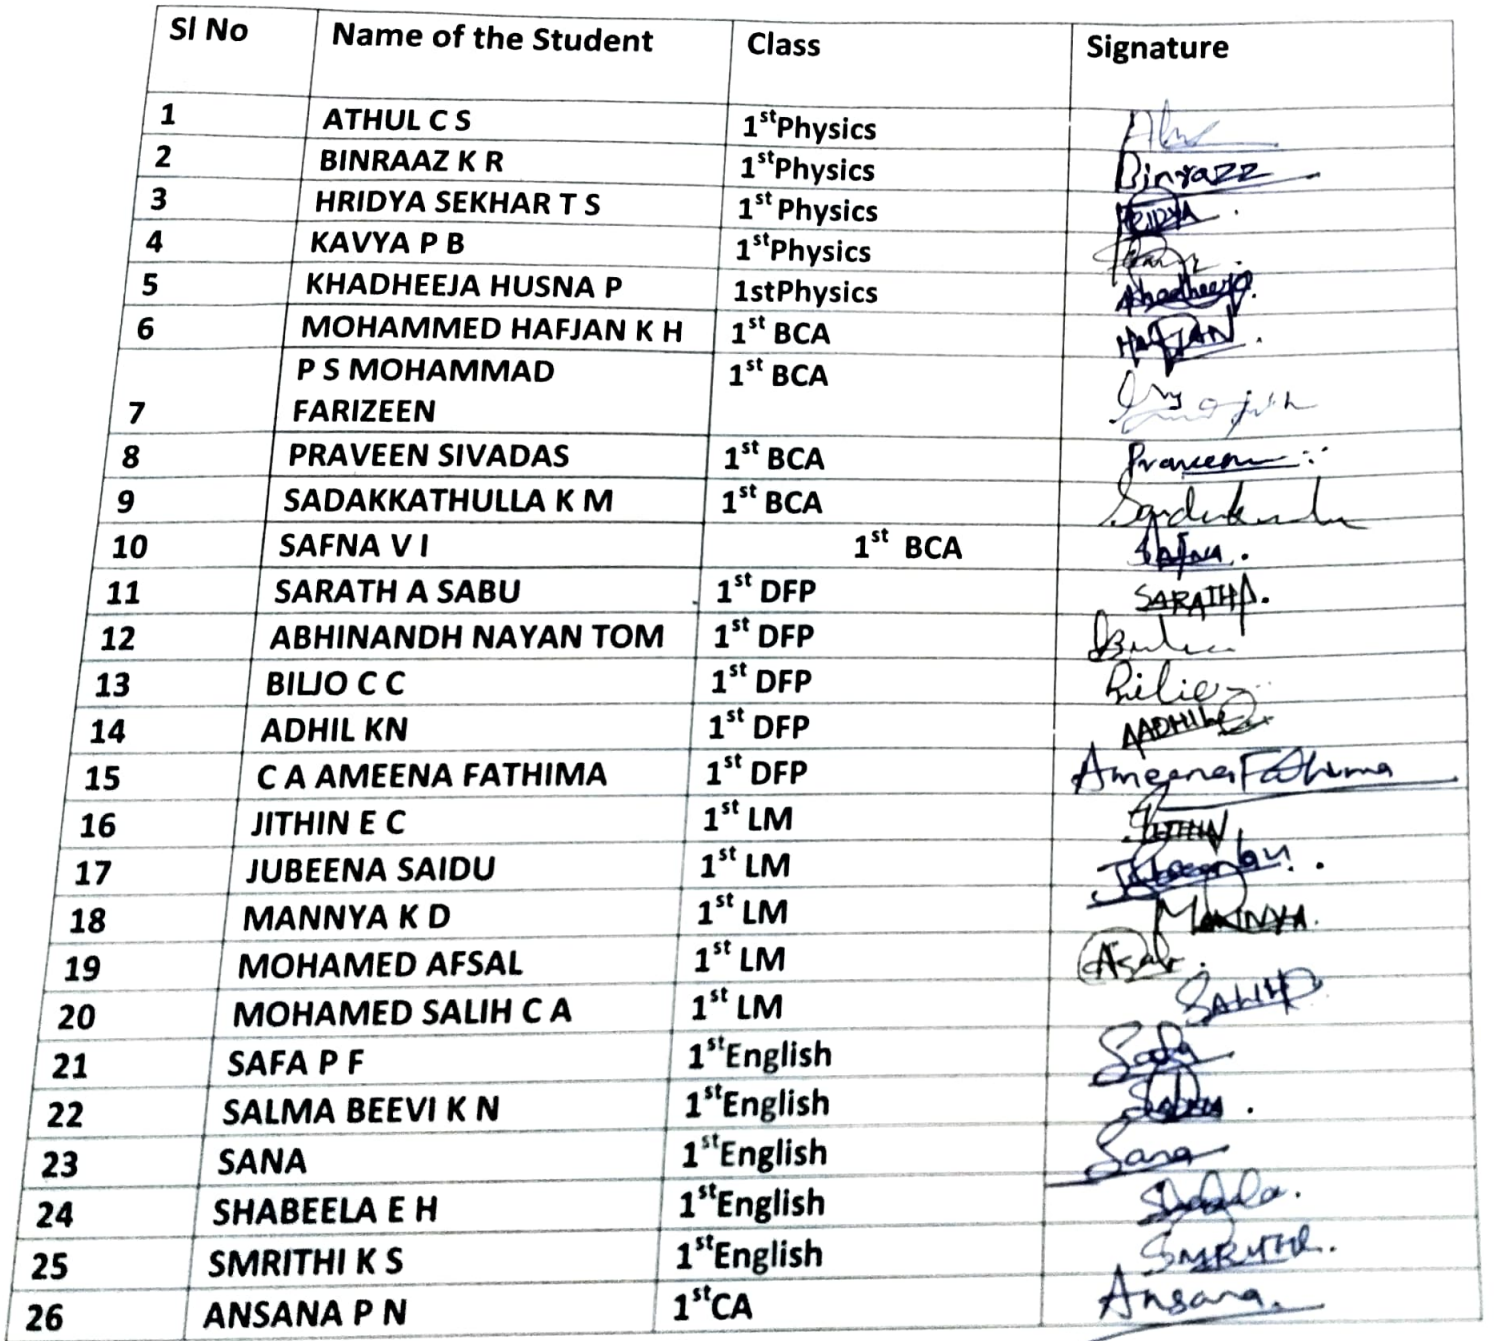 Sl No Name of the Student Class Signature
1 ATHUL C S 1stPhysics
2 BINRAAZ K R 1stPhysics Binrazz
3 HRIDYA SEKHAR T S 1st Physics HRIDYA
4 KAVYA P B 1stPhysics
5 KHADHEEJA HUSNA P 1stPhysics Khadheeja
6 MOHAMMED HAFJAN K H 1st BCA HAFJAN
P S MOHAMMAD 1st BCA
7 FARIZEEN
8 PRAVEEN SIVADAS 1st BCA Praveen
9 SADAKKATHULLA K M 1st BCA
10 SAFNA V I 1st BCA Safna
11 SARATH A SABU 1st DFP SARATH
12 ABHINANDH NAYAN TOM 1st DFP
13 BILJO C C 1st DFP
14 ADHIL KN 1st DFP AADHIL
15 C A AMEENA FATHIMA 1st DFP Ameena Fathima
16 JITHIN E C 1st LM JITHIN
17 JUBEENA SAIDU 1st LM
18 MANNYA K D 1st LM MANNYA
19 MOHAMED AFSAL 1st LM
20 MOHAMED SALIH C A 1st LM SALIH
21 SAFA P F 1stEnglish Safa
22 SALMA BEEVI K N 1stEnglish
23 SANA 1stEnglish Sana
24 SHABEELA E H 1stEnglish
25 SMRITHI K S 1stEnglish SMRITHI
26 ANSANA P N 1stCA Ansana